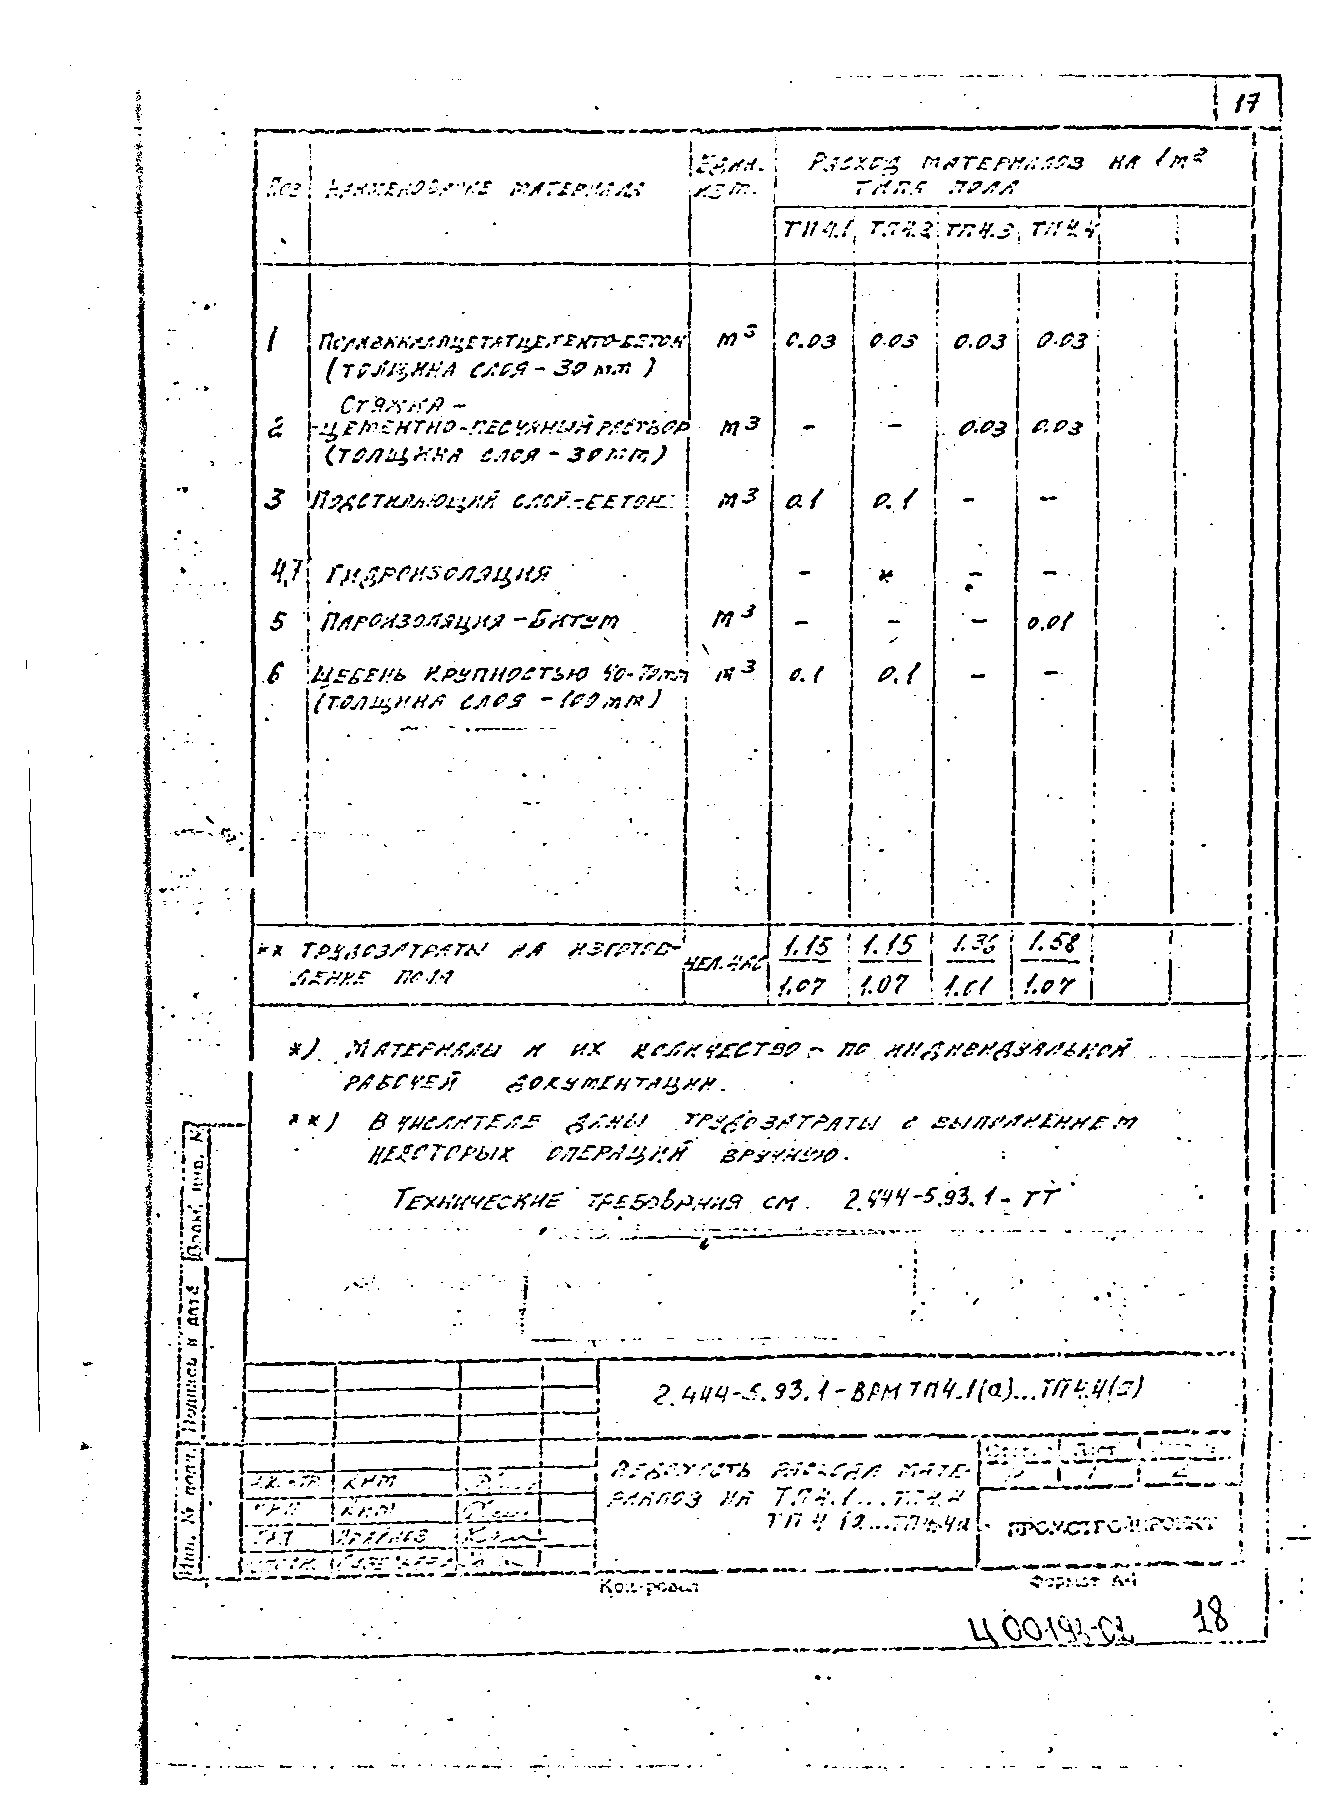 17
Поз Наименование материала Един. изм. Расход материалов на 1м2 типа пола
ТП4.1 ТП4.2 ТП4.3 ТП4.4
1 Поливинилацетатцементо-бетон м3 0.03 0.03 0.03 0.03
(толщина слоя - 30 мм)
Стяжка -
2 -цементно-песчаный раствор м3 - - 0.03 0.03
(толщина слоя - 30 мм)
3 Подстилающий слой-бетон м3 0.1 0.1 - -
4,7 Гидроизоляция - * - -
5 Пароизоляция - битум м3 - - - 0.01
6 Щебень крупностью 40-70мм м3 0.1 0.1 - -
(толщина слоя - 100 мм)
** Трудозатраты на изготов- чел.час 1.15 1.15 1.36 1.58
ление пола 1.07 1.07 1.01 1.07
*) Материалы и их количество - по индивидуальной
рабочей документации.
**) В числителе даны трудозатраты с выполнением
некоторых операций вручную.
Технические требования см. 2.444-5.93.1-ТТ
Взам. инв. №
Подпись и дата
Инв. № подл.
2.444-5.93.1-ВРМ ТП4.1(а)...ТП4.4(а)
Ведомость расхода мате-
риалов на ТП4.1...ТП4.4
ТП4.1а...ТП4.4а
Стадия Лист Листов
Р 1 2
ПРОМСТРОЙПРОЕКТ
Ким
ГИП Ким
Копировал Формат А4
Ц00193-02 18